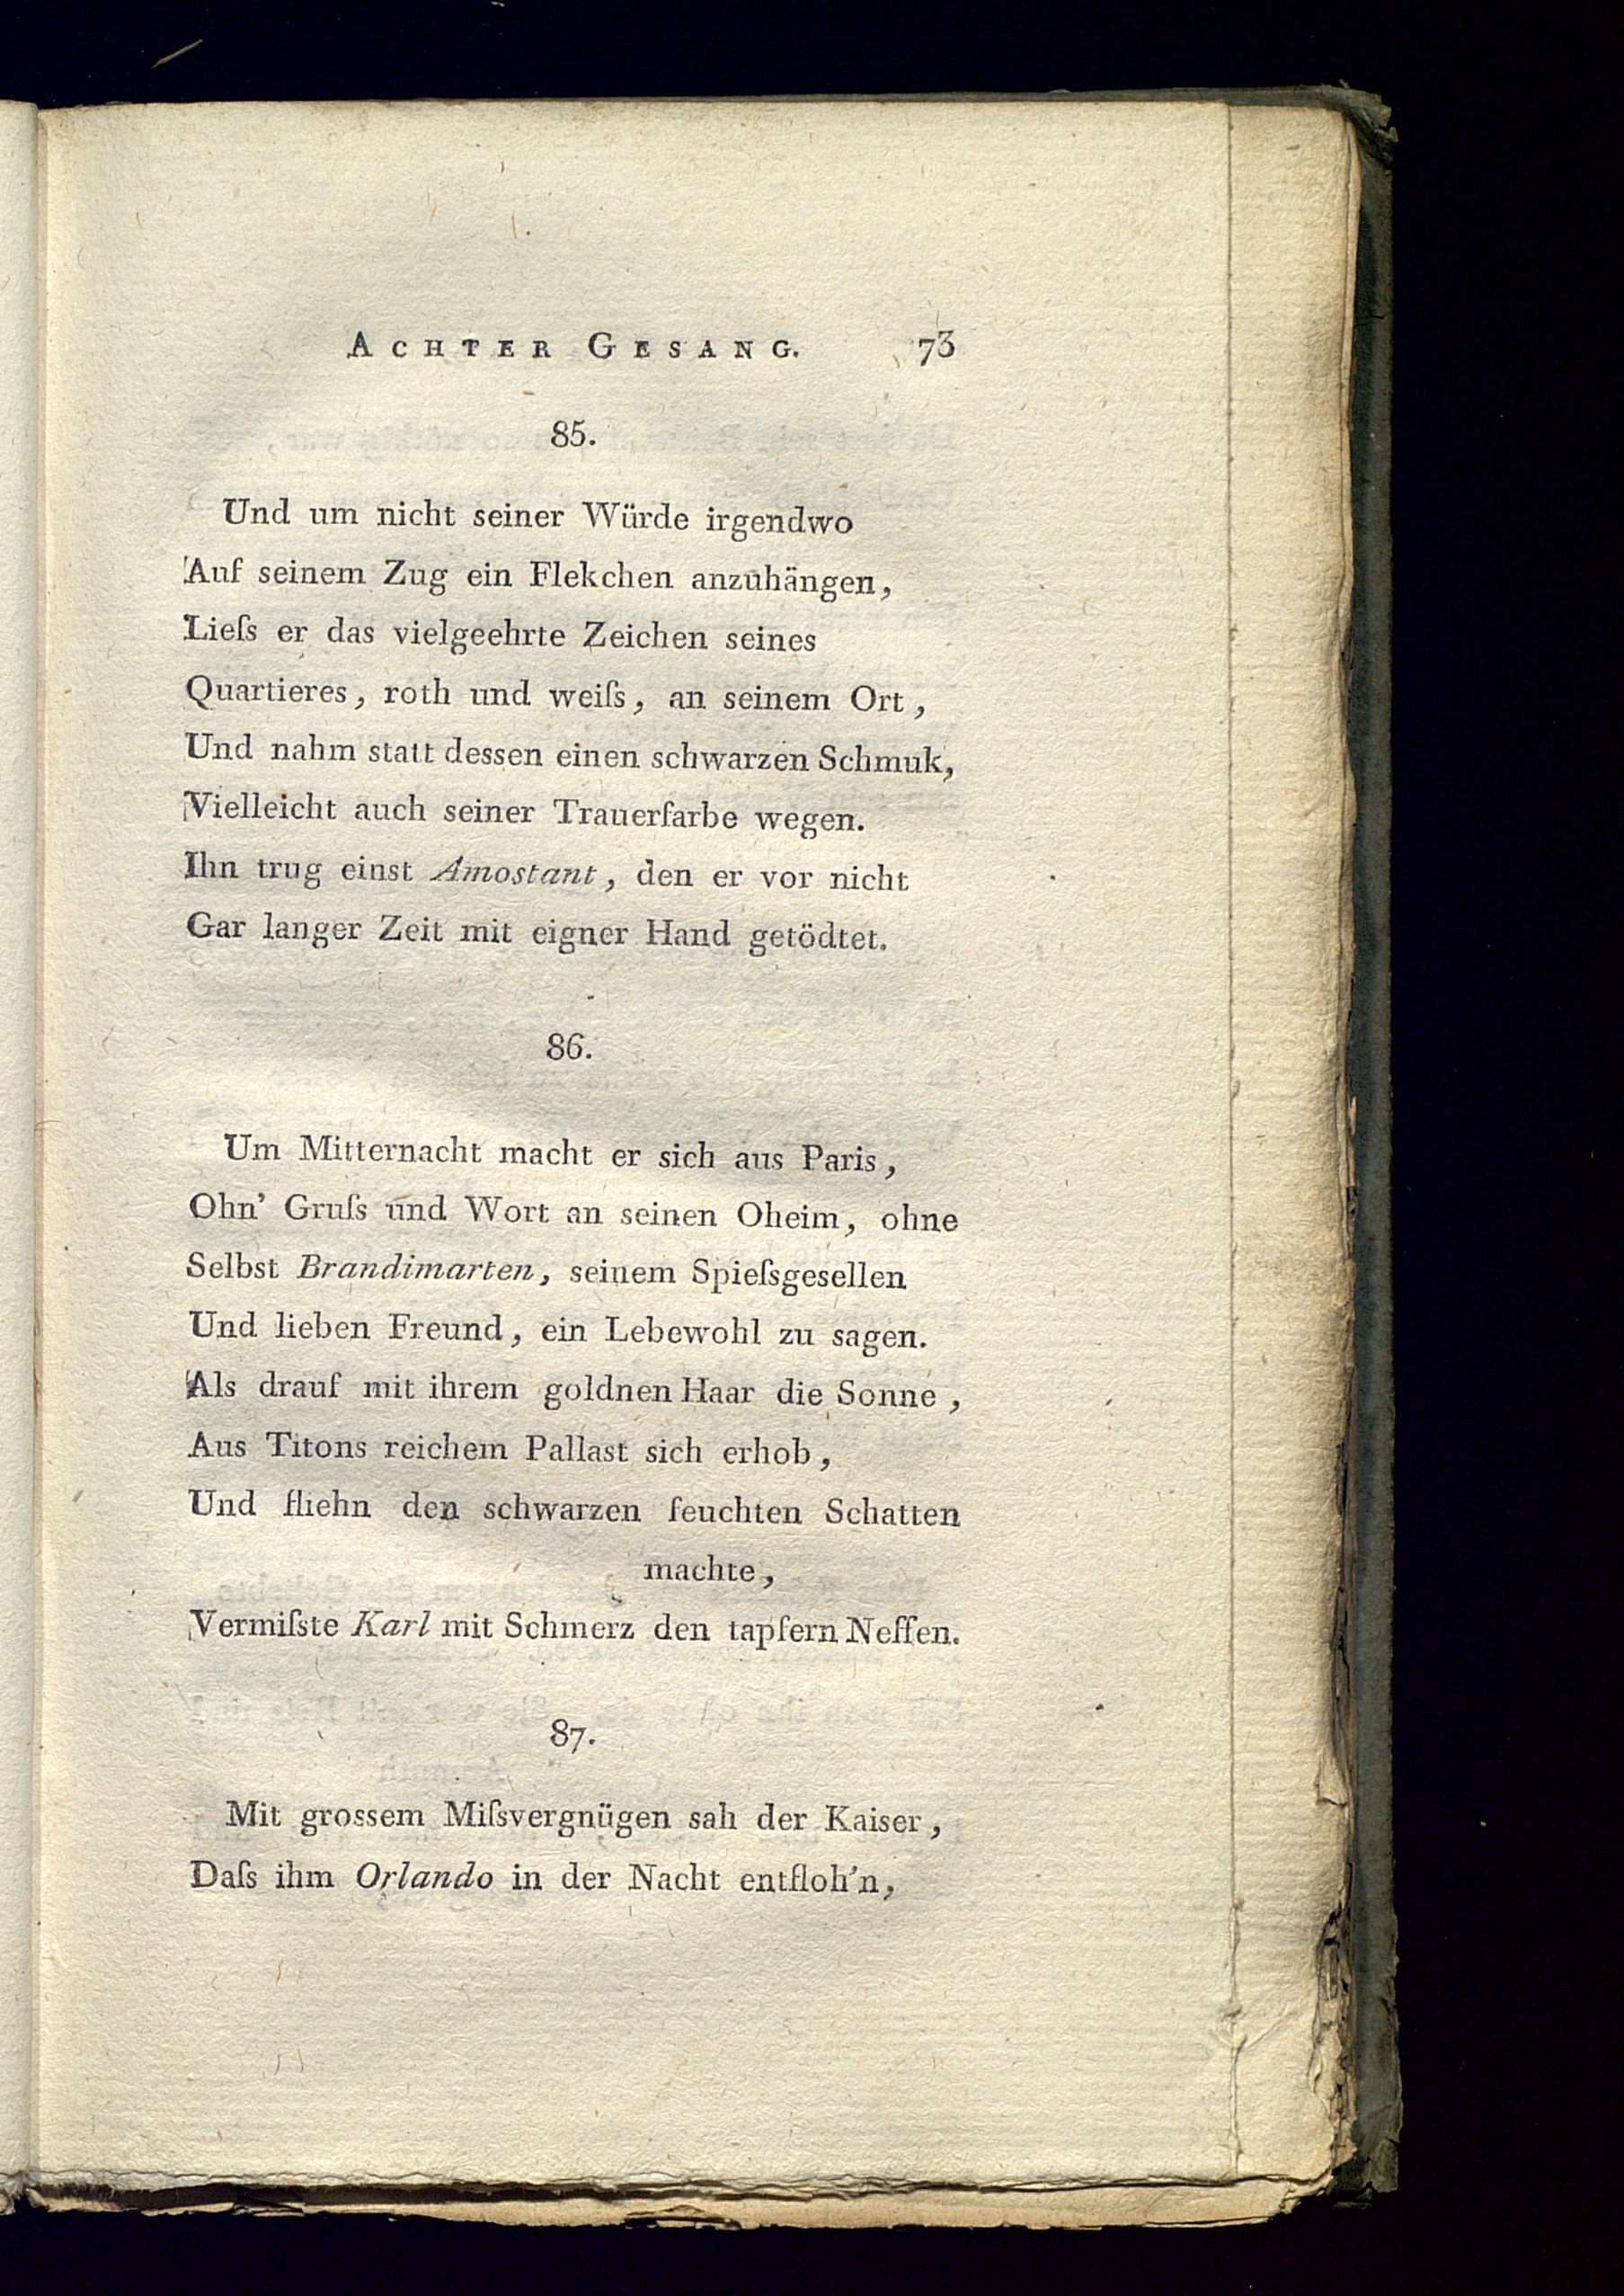 ACHTER GESANG. 73
85.
Und um nicht seiner Würde irgendwo
Auf seinem Zug ein Flekchen anzuhängen,
Lieſs er das vielgeehrte Zeichen seines
Quartieres, roth und weiſs, an seinem Ort,
Und nahm statt dessen einen schwarzen Schmuk,
Vielleicht auch seiner Trauerfarbe wegen.
Ihn trug einst Amostant, den er vor nicht
Gar langer Zeit mit eigner Hand getödtet.
86.
Um Mitternacht macht er sich aus Paris,
Ohn' Gruſs und Wort an seinen Oheim, ohne
Selbst Brandimarten, seinem Spieſsgesellen
Und lieben Freund, ein Lebewohl zu sagen.
Als drauf mit ihrem goldnen Haar die Sonne,
Aus Titons reichem Pallast sich erhob,
Und fliehn den schwarzen feuchten Schatten
machte,
Vermiſste Karl mit Schmerz den tapfern Neffen.
87.
Mit grossem Miſsvergnügen sah der Kaiser,
Daſs ihm Orlando in der Nacht entfloh'n,